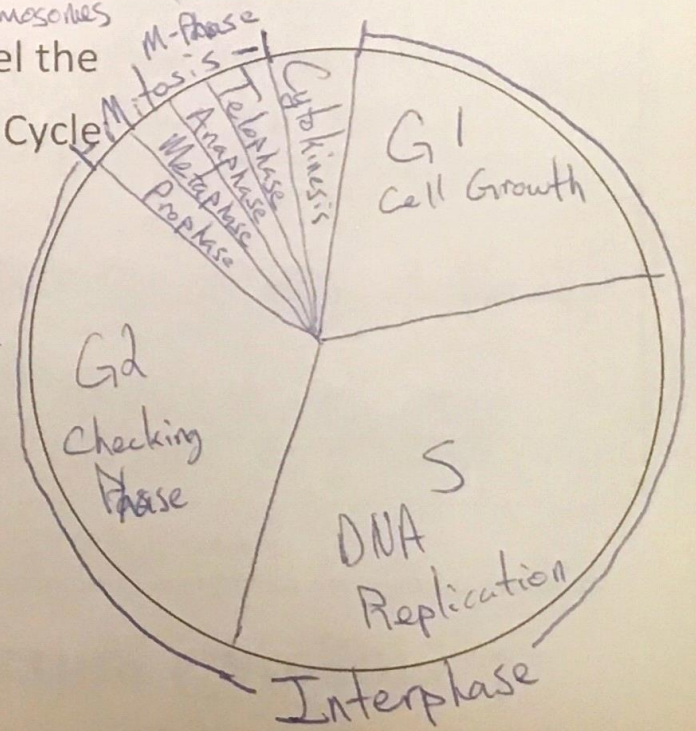 mosomes
el the
Cycle
M-Phase
Mitosis
Prophase
Metaphase
Anaphase
Telophase
Cytokinesis
G1
Cell Growth
S
DNA
Replication
G2
Checking
Phase
Interphase